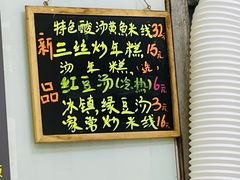 特色酸汤黄鱼米线32元
新三丝炒年糕,15元
汤年糕,(洗)
品红豆汤(冷.热)6元
冰镇,绿豆汤3元
家常炒米线16元